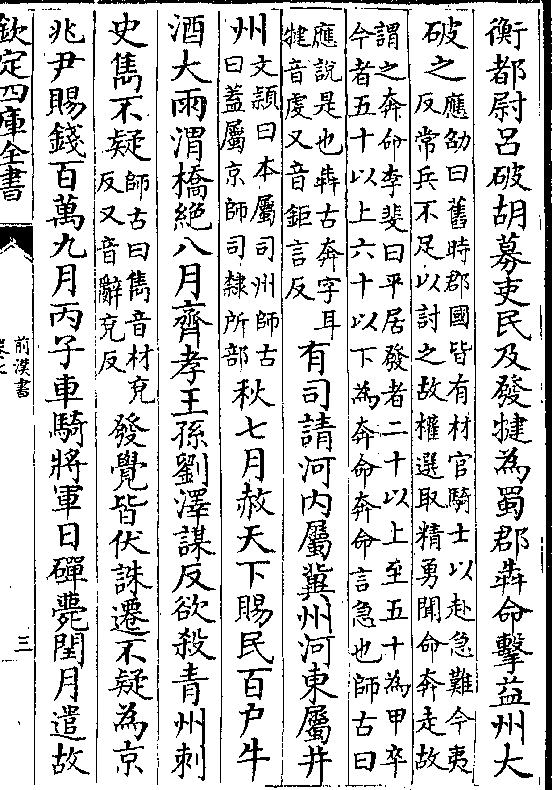 衡都尉呂破胡募吏民及發犍為蜀郡犇命擊益州大
破之
應劭曰舊時郡國皆有材官騎士以赴急難今夷
反常兵不足以討之故權選取精勇聞命奔走故
謂之奔命李斐曰平居發者二十以上至五十為甲卒
今者五十以上六十以下為奔命奔命言急也師古曰
應說是也犇古奔字耳
犍音虔又音鉅言反
有司請河内屬冀州河東屬并
州
文頴曰本屬司州師古
曰蓋屬京師司隸所部
秋七月赦天下賜民百戶牛
酒大雨渭橋絶八月齊孝王孫劉澤謀反欲殺青州刺
史雋不疑
師古曰雋音材兖
反又音辭兖反
發覺皆伏誅遷不疑為京
兆尹賜錢百萬九月丙子車騎將軍日磾薨閏月遣故
欽定四庫全書
前漢書
卷七
三